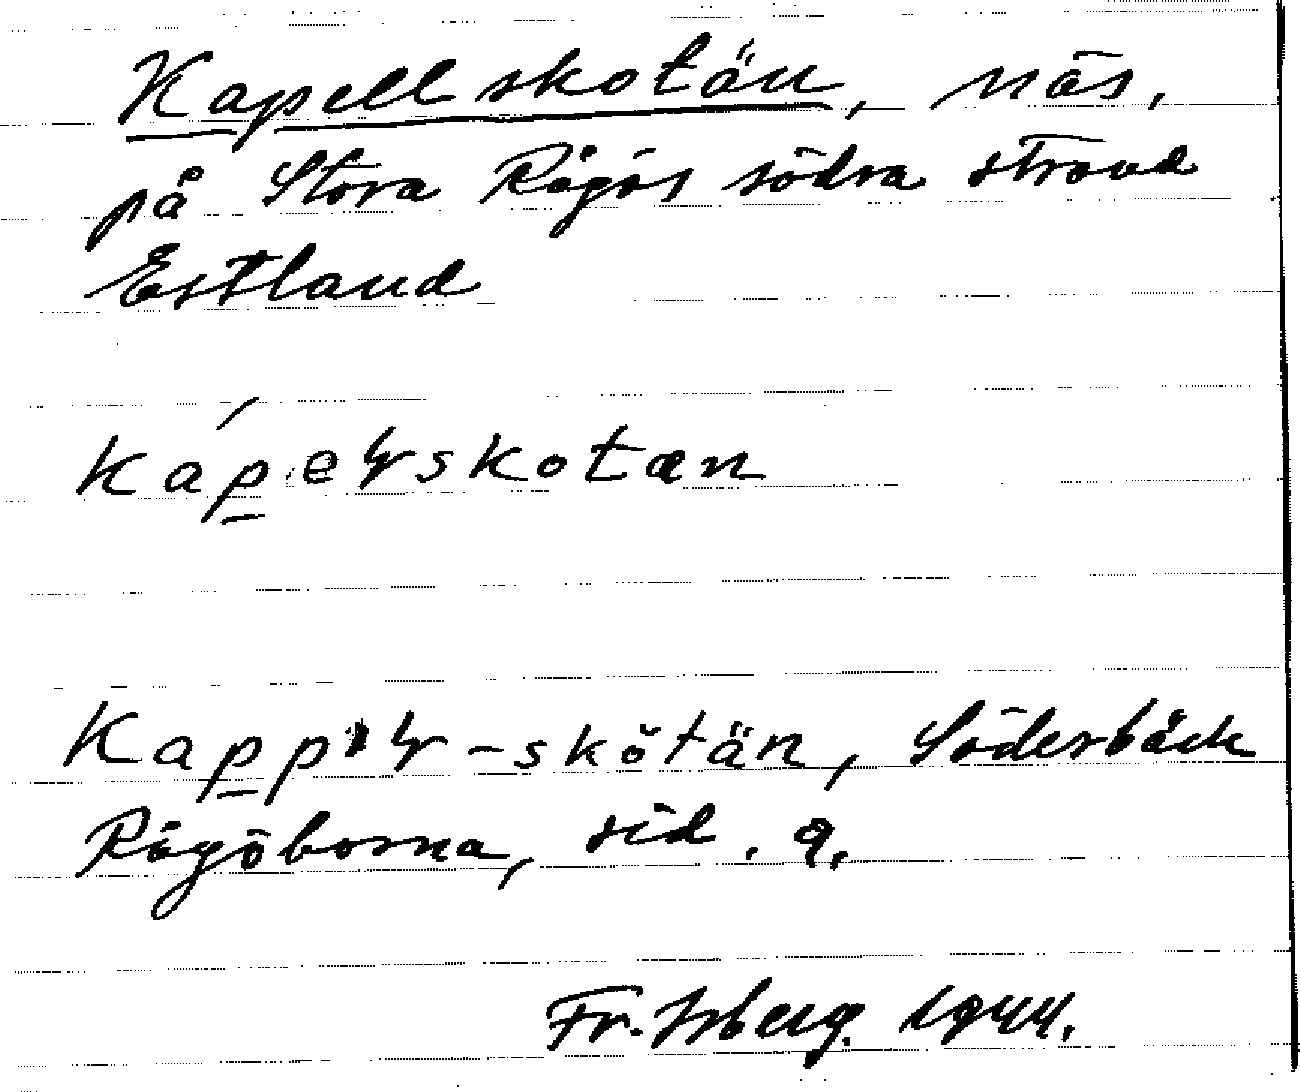 Kapellskotän, näs,
på Stora Rågös södra strand
Estland
Kápelskotæn
Kappel-skötän, Söderbäck
Rågöborna, sid. 9.
Fr. Isberg. 1944.